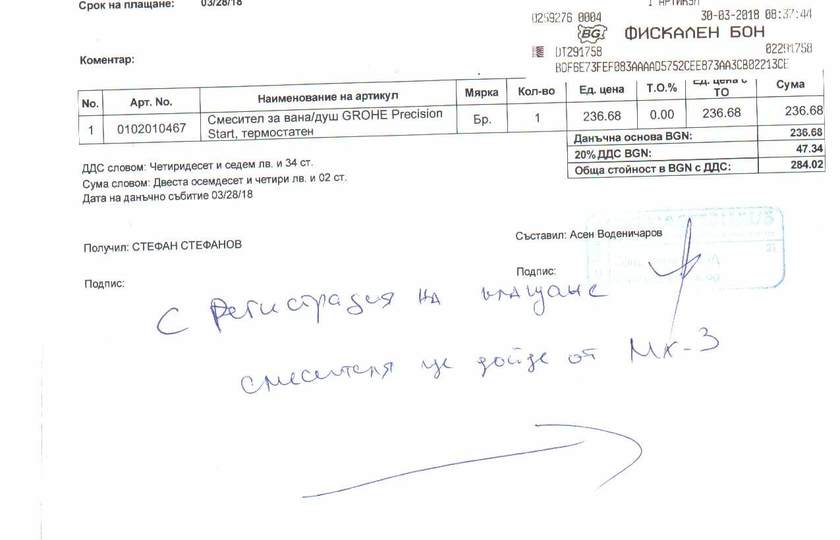 Срок на плащане: 03/28/18
1 АРТИКУЛ
0259276 0004 30-03-2018 08:37:44
BG ФИСКАЛЕН БОН
DT291758 02291758
BDF6E73FEF083AAAAD5752CEE873AA3CB02213CE
Коментар:
No. Арт. No. Наименование на артикул Мярка Кол-во Ед. цена Т.О.% Ед. цена с ТО Сума
1 0102010467 Смесител за вана/душ GROHE Precision Start, термостатен Бр. 1 236.68 0.00 236.68 236.68
Данъчна основа BGN: 236.68
20% ДДС BGN: 47.34
Обща стойност в BGN с ДДС: 284.02
ДДС словом: Четиридесет и седем лв. и 34 ст.
Сума словом: Двеста осемдесет и четири лв. и 02 ст.
Дата на данъчно събитие 03/28/18
Получил: СТЕФАН СТЕФАНОВ
Съставил: Асен Воденичаров
Подпис:
Подпис:
С Регистрация на плащане
смесителя ще дойде от МК-3